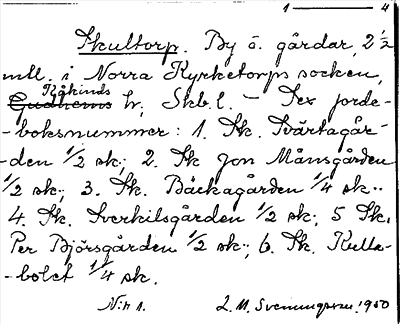 1 — 4
Skultorp. By o. gårdar, 2 ½
mtl. i Norra Kyrketorps socken,
Kåkinds
Gudhems hr, Skb. l. — Sex jorde-
-boksnummer: 1. Sk. Svärtagår-
-den ½ sk; 2. Sk Jon Månsgården
½ sk; 3. Sk. Bäckagården ¼ sk..
4. Sk. Sverkilsgården ½ sk; 5 Sk.
Per Björsgården ½ sk; 6. Sk. Kulla-
-bolet ¼ sk.
N:r 1. L. M. Svenungsson. 1950